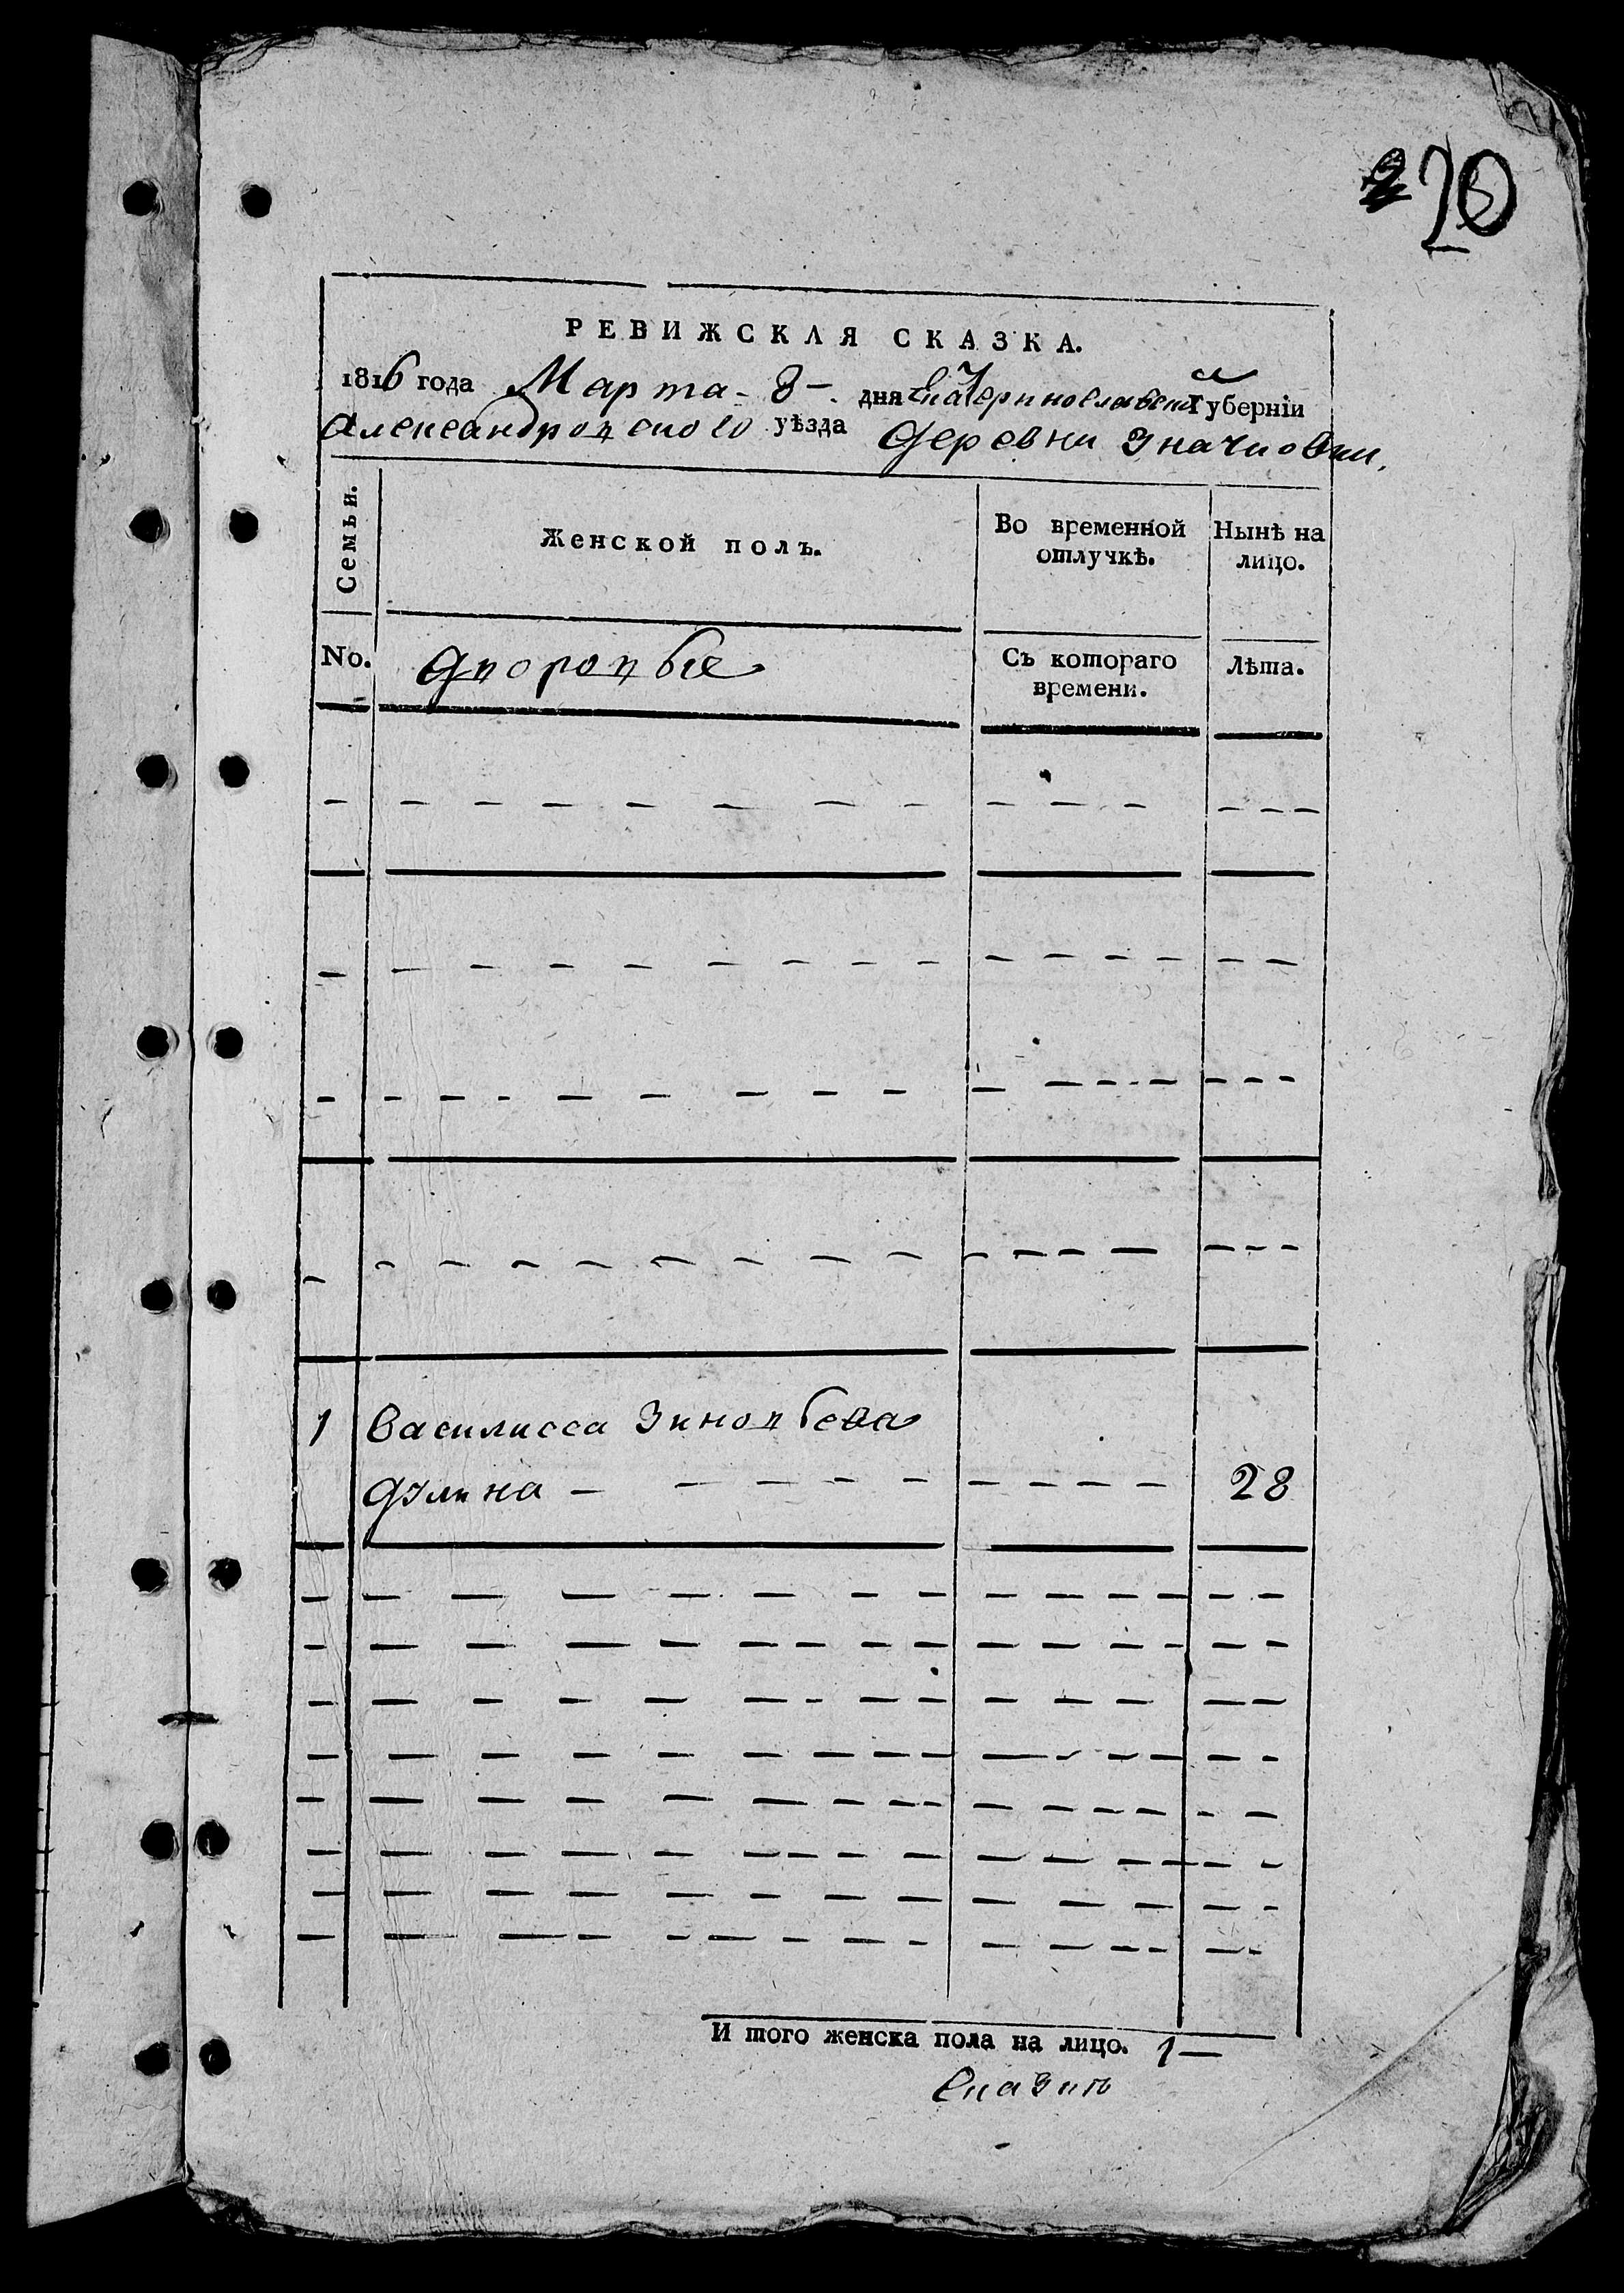 20
РЕВИЖСКАЯ СКАЗКА.
1816 года Марта - 8 - дня Екатеринославской Губерніи
Александровского уѣзда деревни Значковки.
Семьи. Женской полъ. Во временной отлучкѣ. Нынѣ на лицо.
No. дворовые Съ котораго времени. Лѣта.
1 Василисса Зиновьева
28
И того женска пола на лицо. 1 —